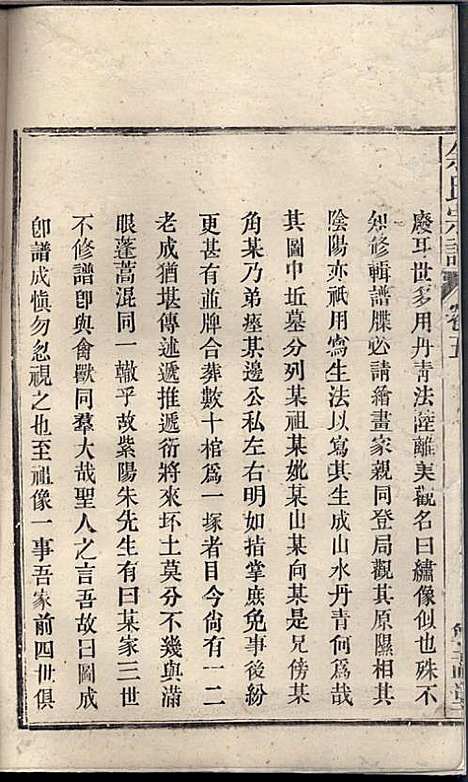 氏宗譜 卷五
廢耳世多用丹青法陸離美觀名曰繡像似也殊不
知修輯譜牒必請繪畫家親同登局觀其原隰相其
陰陽亦祇用寫生法以寫其生成山水丹青何為哉
其圖中坵墓分列某祖某妣某山某向某是兄傍某
角某乃弟瘞某邊公私左右明如指掌庶免事後紛
更甚有並牌合葬數十棺為一塚者目今尙有一二
老成猶堪傳述遞推遞衍將來坏土莫分不幾與滿
眼蓬蒿混同一轍乎故紫陽朱先生有曰某家三世
不修譜卽與禽獸同羣大哉聖人之言吾故曰圖成
卽譜成愼勿忽視之也至祖像一事吾家前四世俱